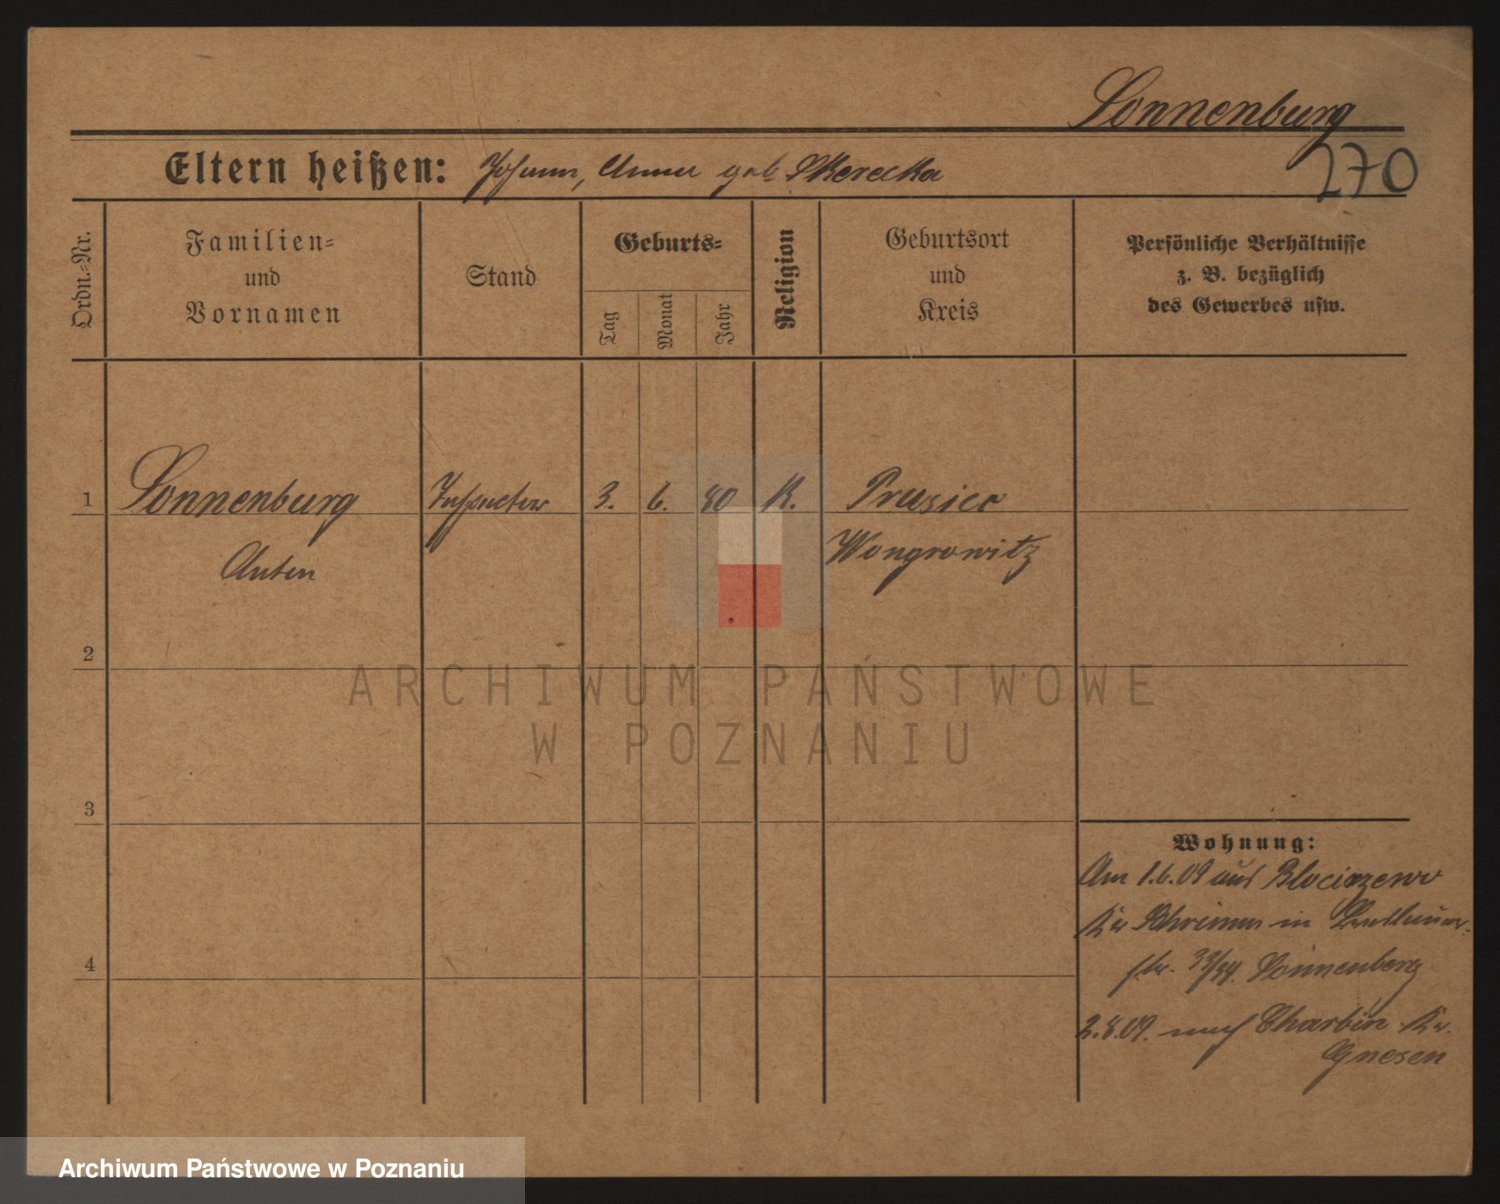 Sonnenburg
270
Eltern heißen: Johann, Anna geb Skerecka
Ordn.-Nr.
Familien-
und
Vornamen
Stand
Geburts-
Tag
Monat
Jahr
Religion
Geburtsort
und
Kreis
Persönliche Verhältnisse
z. B. bezüglich
des Gewerbes usw.
1 Sonnenburg Inspector 3. 6. 80 K. Prusiec
Anton Wongrowitz
2
3
4
Wohnung:
Am 1.6.09 aus Blociszewo
Kr Schrimm in
str. 33/34. Sonnenberg
2.8.09. nach Charbin Kr.
Gnesen
ARCHIWUM PAŃSTWOWE
W POZNANIU
Archiwum Państwowe w Poznaniu